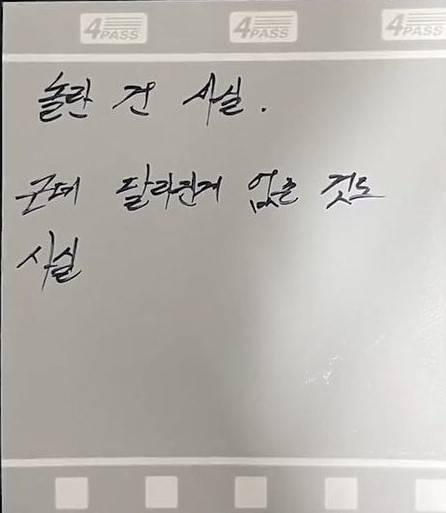 4PASS 4PASS 4PASS
놀란 건 사실.
근데 달라진게 없는 것도
사실